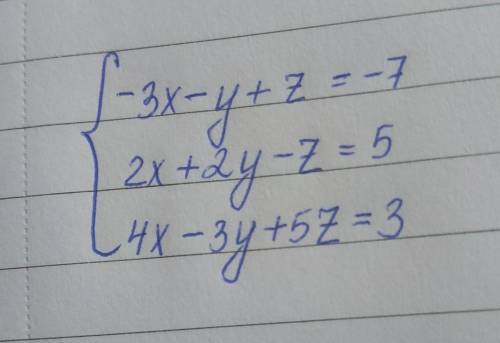 -3x-y+z=-7
2x+2y-z=5
4x-3y+5z=3